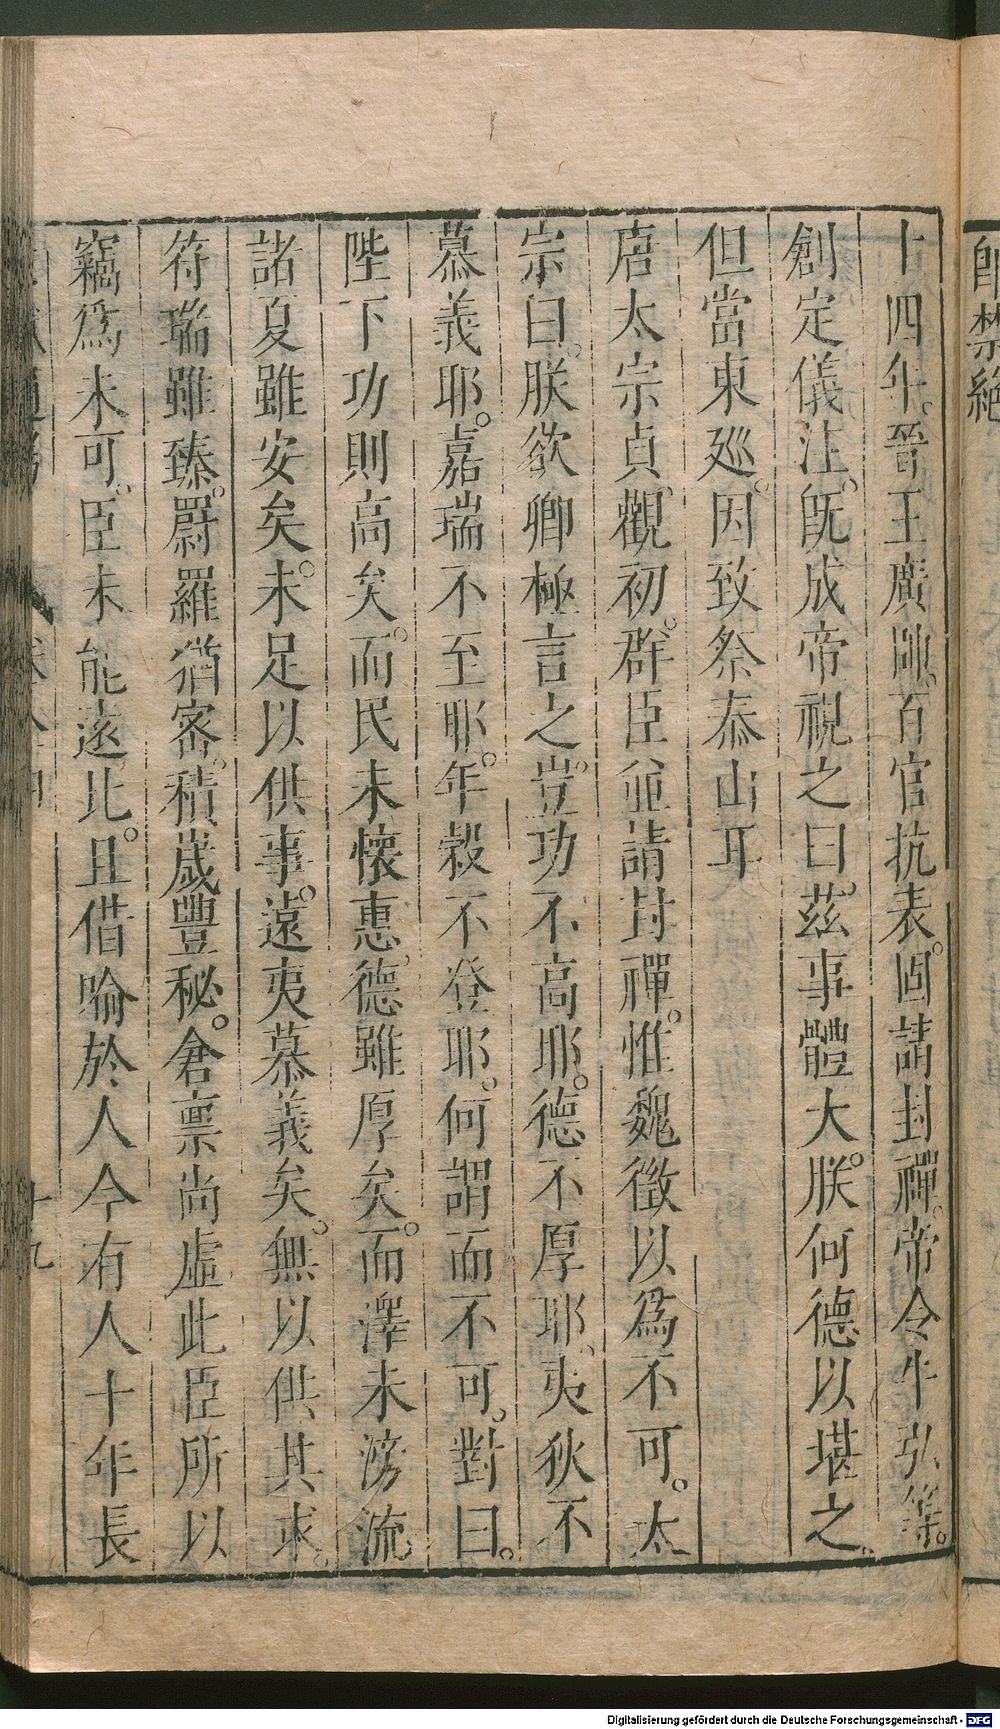 即禁絕
十四年。晉王廣帥百官抗表。固請封禪。帝令牛弘等。
創定儀注。旣成帝視之曰。茲事體大。朕何德以堪之。
但當東廵。因致祭泰山耳
唐太宗貞觀初。群臣並請封禪。惟魏徵以爲不可。太
宗曰。朕欲卿極言之。豈功不高耶。德不厚耶。夷狄不
慕義耶。嘉瑞不至耶。年穀不登耶。何謂而不可。對曰。
陛下功則高矣。而民未懷惠。德雖厚矣。而澤未滂流
諸夏雖安矣。未足以供事。遠夷慕義矣。無以供其求。
符瑞雖臻。罻羅猶密。積歲豐秘。倉稟尚虛此臣所以
竊爲未可。臣未能遠比。且借喻於人今有人十年長
十九
Digitalisierung gefördert durch die Deutsche Forschungsgemeinschaft - DFG